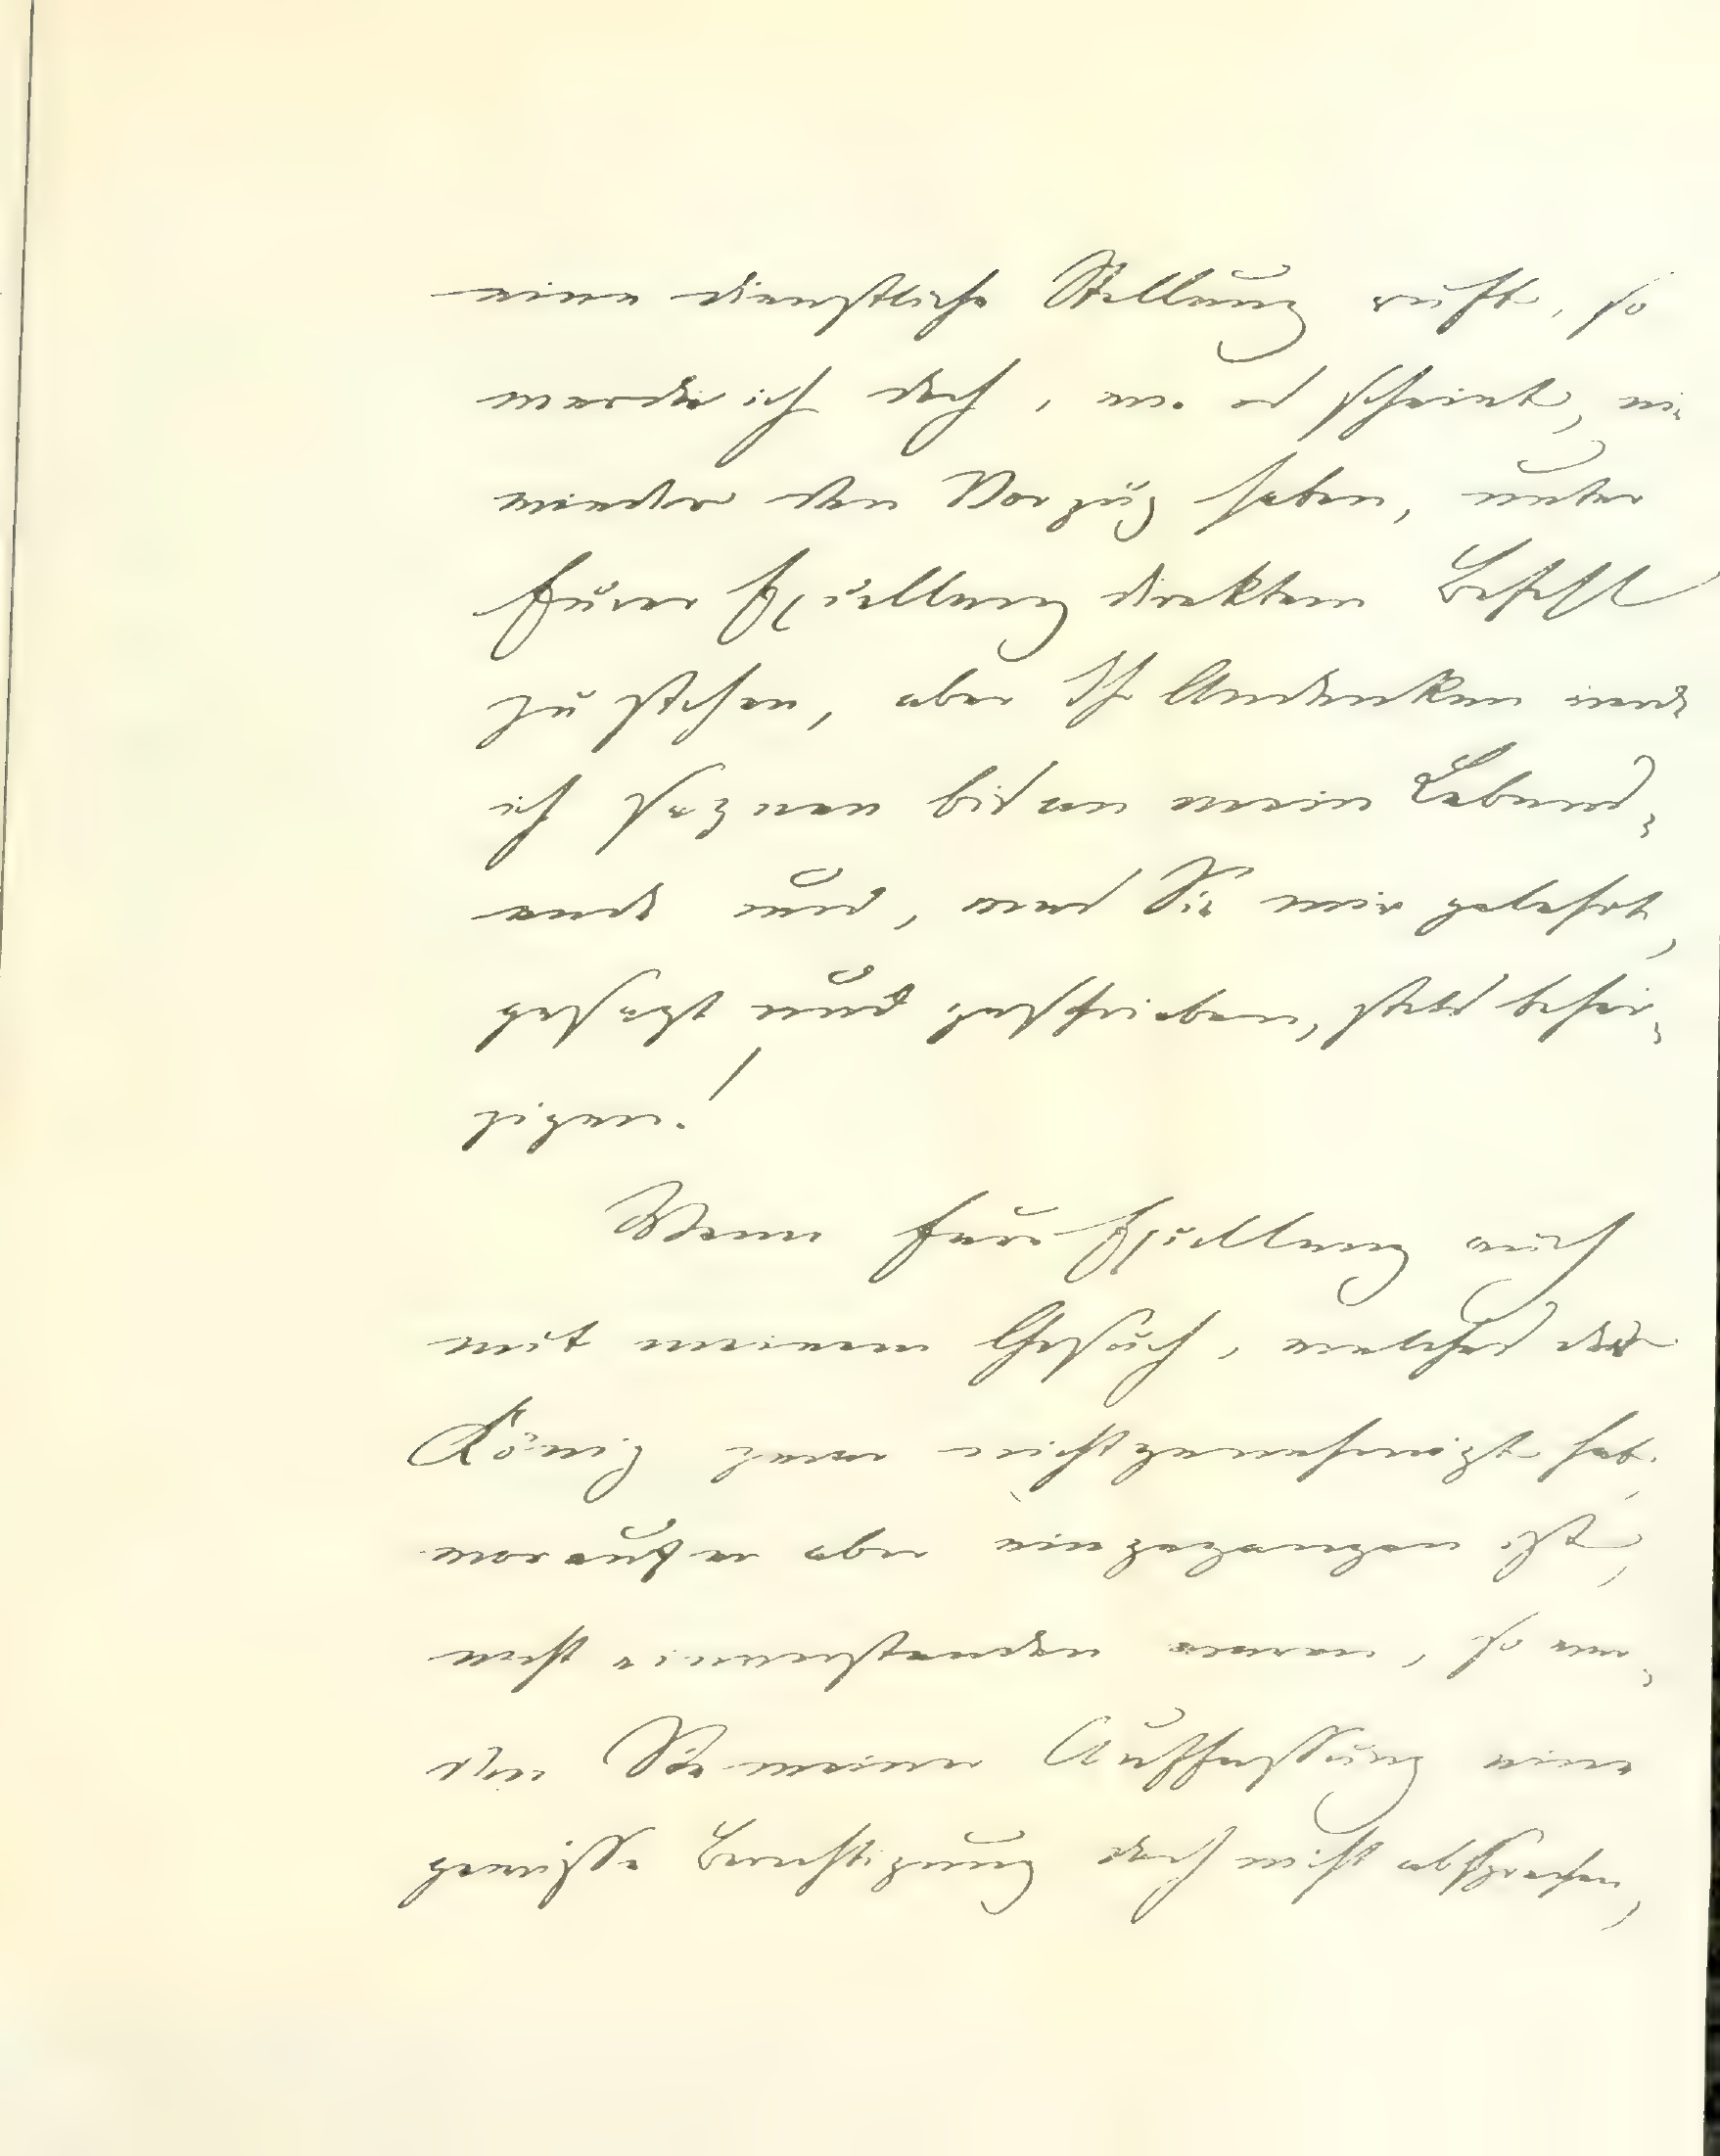 eine dienstliche Stellung ruft, so
werde ich doch, wie es scheint, nie
wieder den Vorzug haben, unter
Eurer Exzellenz direktem Befehl
zu stehen, aber Ihr Andenken werde
ich segnen bis an mein Lebens-
ende und, was Sie mir gelehrt,
gesagt und geschrieben, stets beher-
zigen!
Wenn Eure Exzellenz auch
mit meinem Gesuch, welches der
König zwar nicht genehmigt hat,
worauf er aber eingegangen ist,
nicht einverstanden waren, so wer-
den Sie meiner Auffassung eine
gewisse Berechtigung doch nicht absprechen,